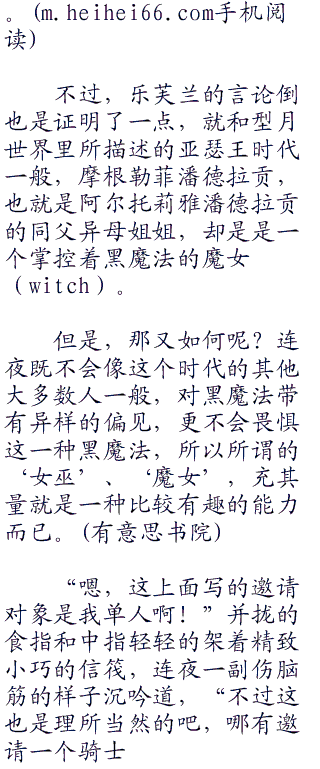 。(m.heihei66.com手机阅
读)
不过，乐芙兰的言论倒
也是证明了一点，就和型月
世界里所描述的亚瑟王时代
一般，摩根勒菲潘德拉贡，
也就是阿尔托莉雅潘德拉贡
的同父异母姐姐，却是是一
个掌控着黑魔法的魔女
（witch）。
但是，那又如何呢？连
夜既不会像这个时代的其他
大多数人一般，对黑魔法带
有异样的偏见，更不会畏惧
这一种黑魔法，所以所谓的
‘女巫’、‘魔女’，充其
量就是一种比较有趣的能力
而已。(有意思书院)
“嗯，这上面写的邀请
对象是我单人啊！”并拢的
食指和中指轻轻的架着精致
小巧的信筏，连夜一副伤脑
筋的样子沉吟道，“不过这
也是理所当然的吧，哪有邀
请一个骑士